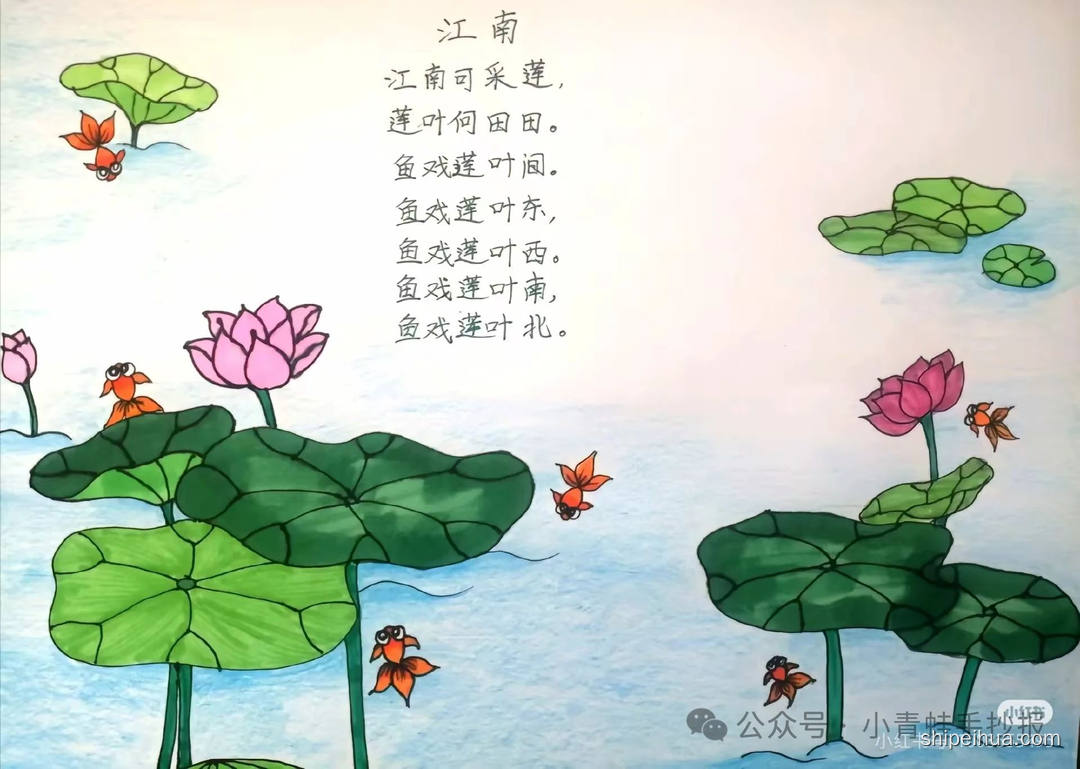 江南
江南可采莲,
莲叶何田田。
鱼戏莲叶间。
鱼戏莲叶东,
鱼戏莲叶西。
鱼戏莲叶南,
鱼戏莲叶北。
小红书
公众号·小青蛙手抄报
小红书
shipeihua.com